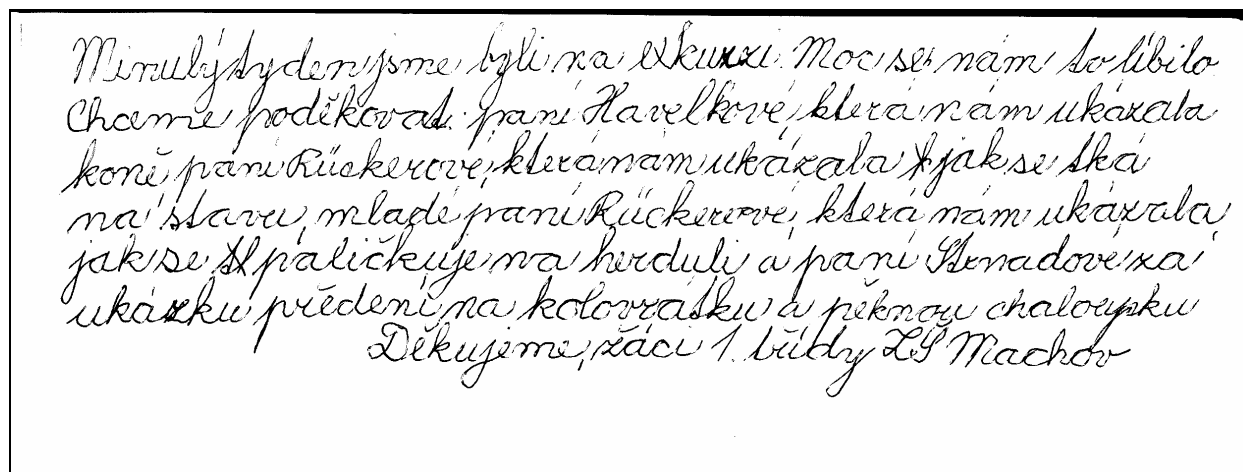 Minulý tyden jsme byli na exkurzi. Moc se nám to líbilo
Chceme poděkovat paní Havelkové, která nám ukázala
koně, paní Rückerové, která nám ukázala jak se tká
na stavu, mladé paní Rückerové, která nám ukázala,
jak se paličkuje na herduli a paní Strnadové za
ukázku předení na kolovrátku a pěknou chaloupku
Děkujeme, žáci 1. třídy ZŠ Machov